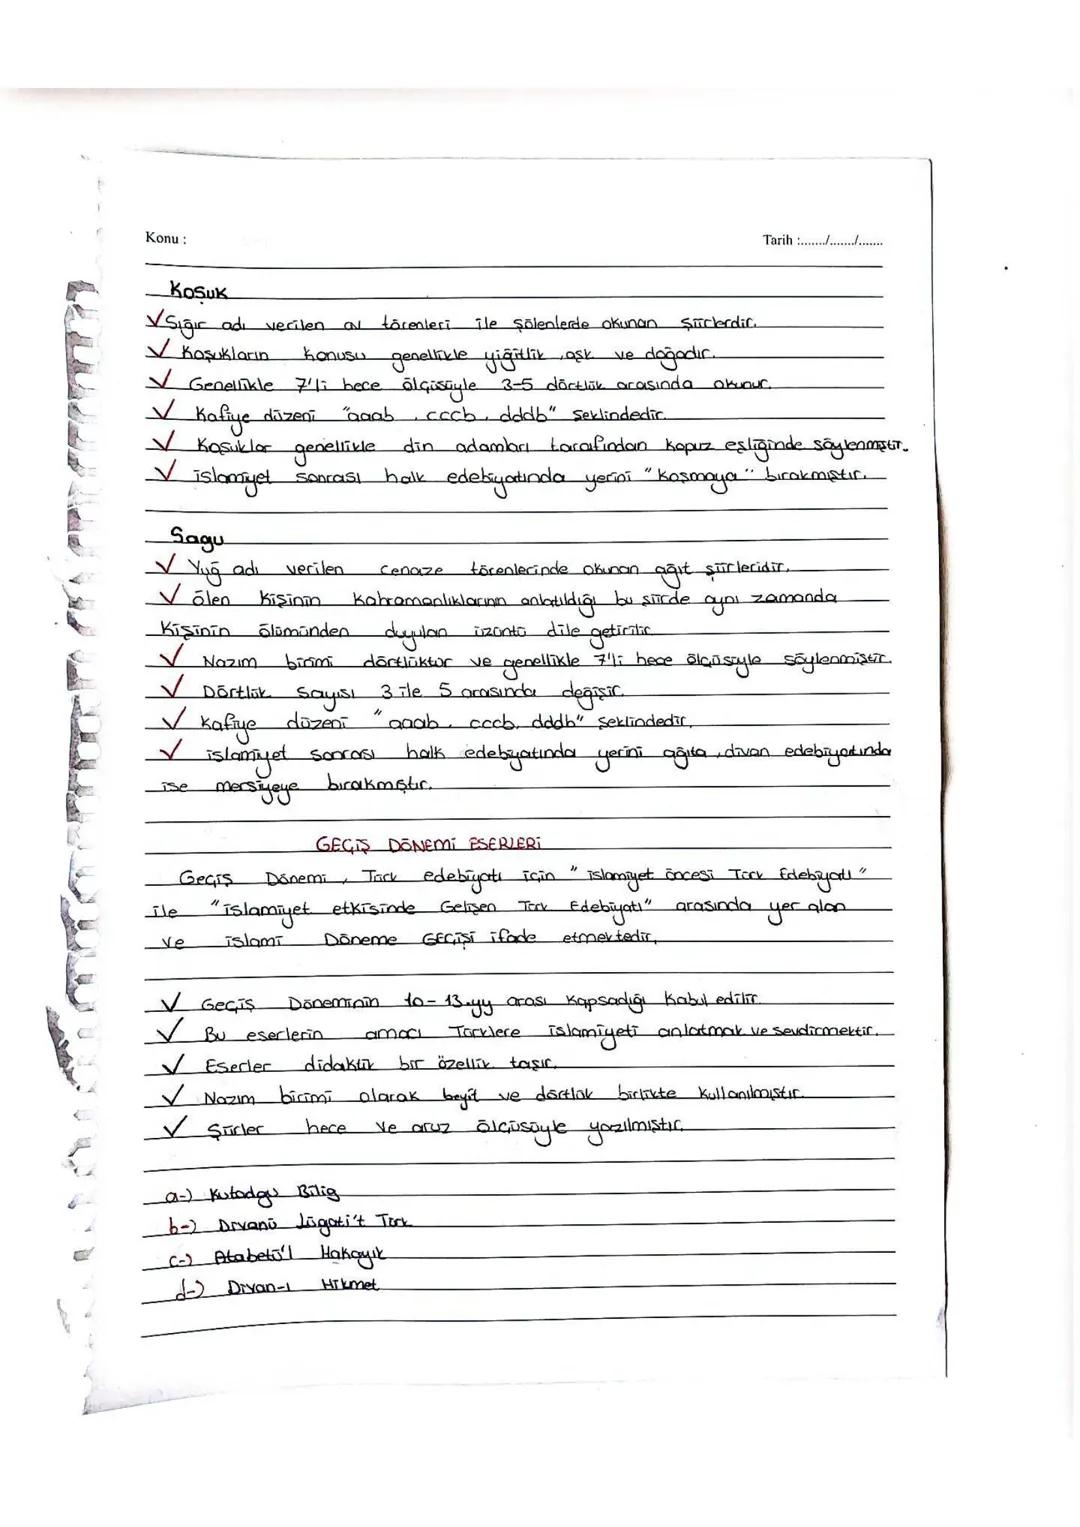 Konu :
Tarih :......./......./.......
Koşuk
✓Sığır adı verilen av törenleri ile şölenlerde okunan şiirlerdir.
✓ Koşukların konusu genellikle yiğitlik, aşk ve doğadır.
✓ Genellikle 7'li hece ölçüsüyle 3-5 dörtlük arasında okunur.
✓ Kafiye düzeni "aaab, cccb, dddb" şeklindedir.
✓ Koşuklar genellikle din adamları tarafından kopuz eşliğinde söylenmiştir.
✓ islamiyet sonrası halk edebiyatında yerini "koşmaya" bırakmıştır.
Sagu
✓ Yuğ adı verilen cenaze törenlerinde okunan ağıt şiirleridir.
✓ ölen kişinin kahramanlıklarının anlatıldığı bu şiirde aynı zamanda
kişinin ölümünden duyulan üzüntü dile getirilir.
✓ Nazım birimi dörtlüktür ve genellikle 7'li hece ölçüsüyle söylenmiştir.
✓ Dörtlük sayısı 3 ile 5 arasında değişir.
✓ Kafiye düzeni "aaab, cccb, dddb" şeklindedir.
✓ islamiyet sonrası halk edebiyatında yerini ağıta, divan edebiyatında
ise mersiyeye bırakmıştır.
GEÇİŞ DÖNEMİ ESERLERİ
Geçiş Dönemi, Türk edebiyatı için "islamiyet öncesi Türk Edebiyatı"
ile "islamiyet etkisinde Gelişen Türk Edebiyatı" arasında yer alan
ve islami Döneme GEÇİŞİ ifade etmektedir.
✓ Geçiş Döneminin 10-13.yy arası kapsadığı kabul edilir.
✓ Bu eserlerin amacı Türklere islamiyeti anlatmak ve sevdirmektir.
✓ Eserler didaktik bir özellik taşır.
✓ Nazım birimi olarak beyit ve dörtlük birlikte kullanılmıştır.
✓ Şiirler hece ve aruz ölçüsüyle yazılmıştır.
a-) Kutadgu Bilig
b-) Divanü Lügati't Türk
c-) Atabetü'l Hakayık
d-) Divan-ı Hikmet